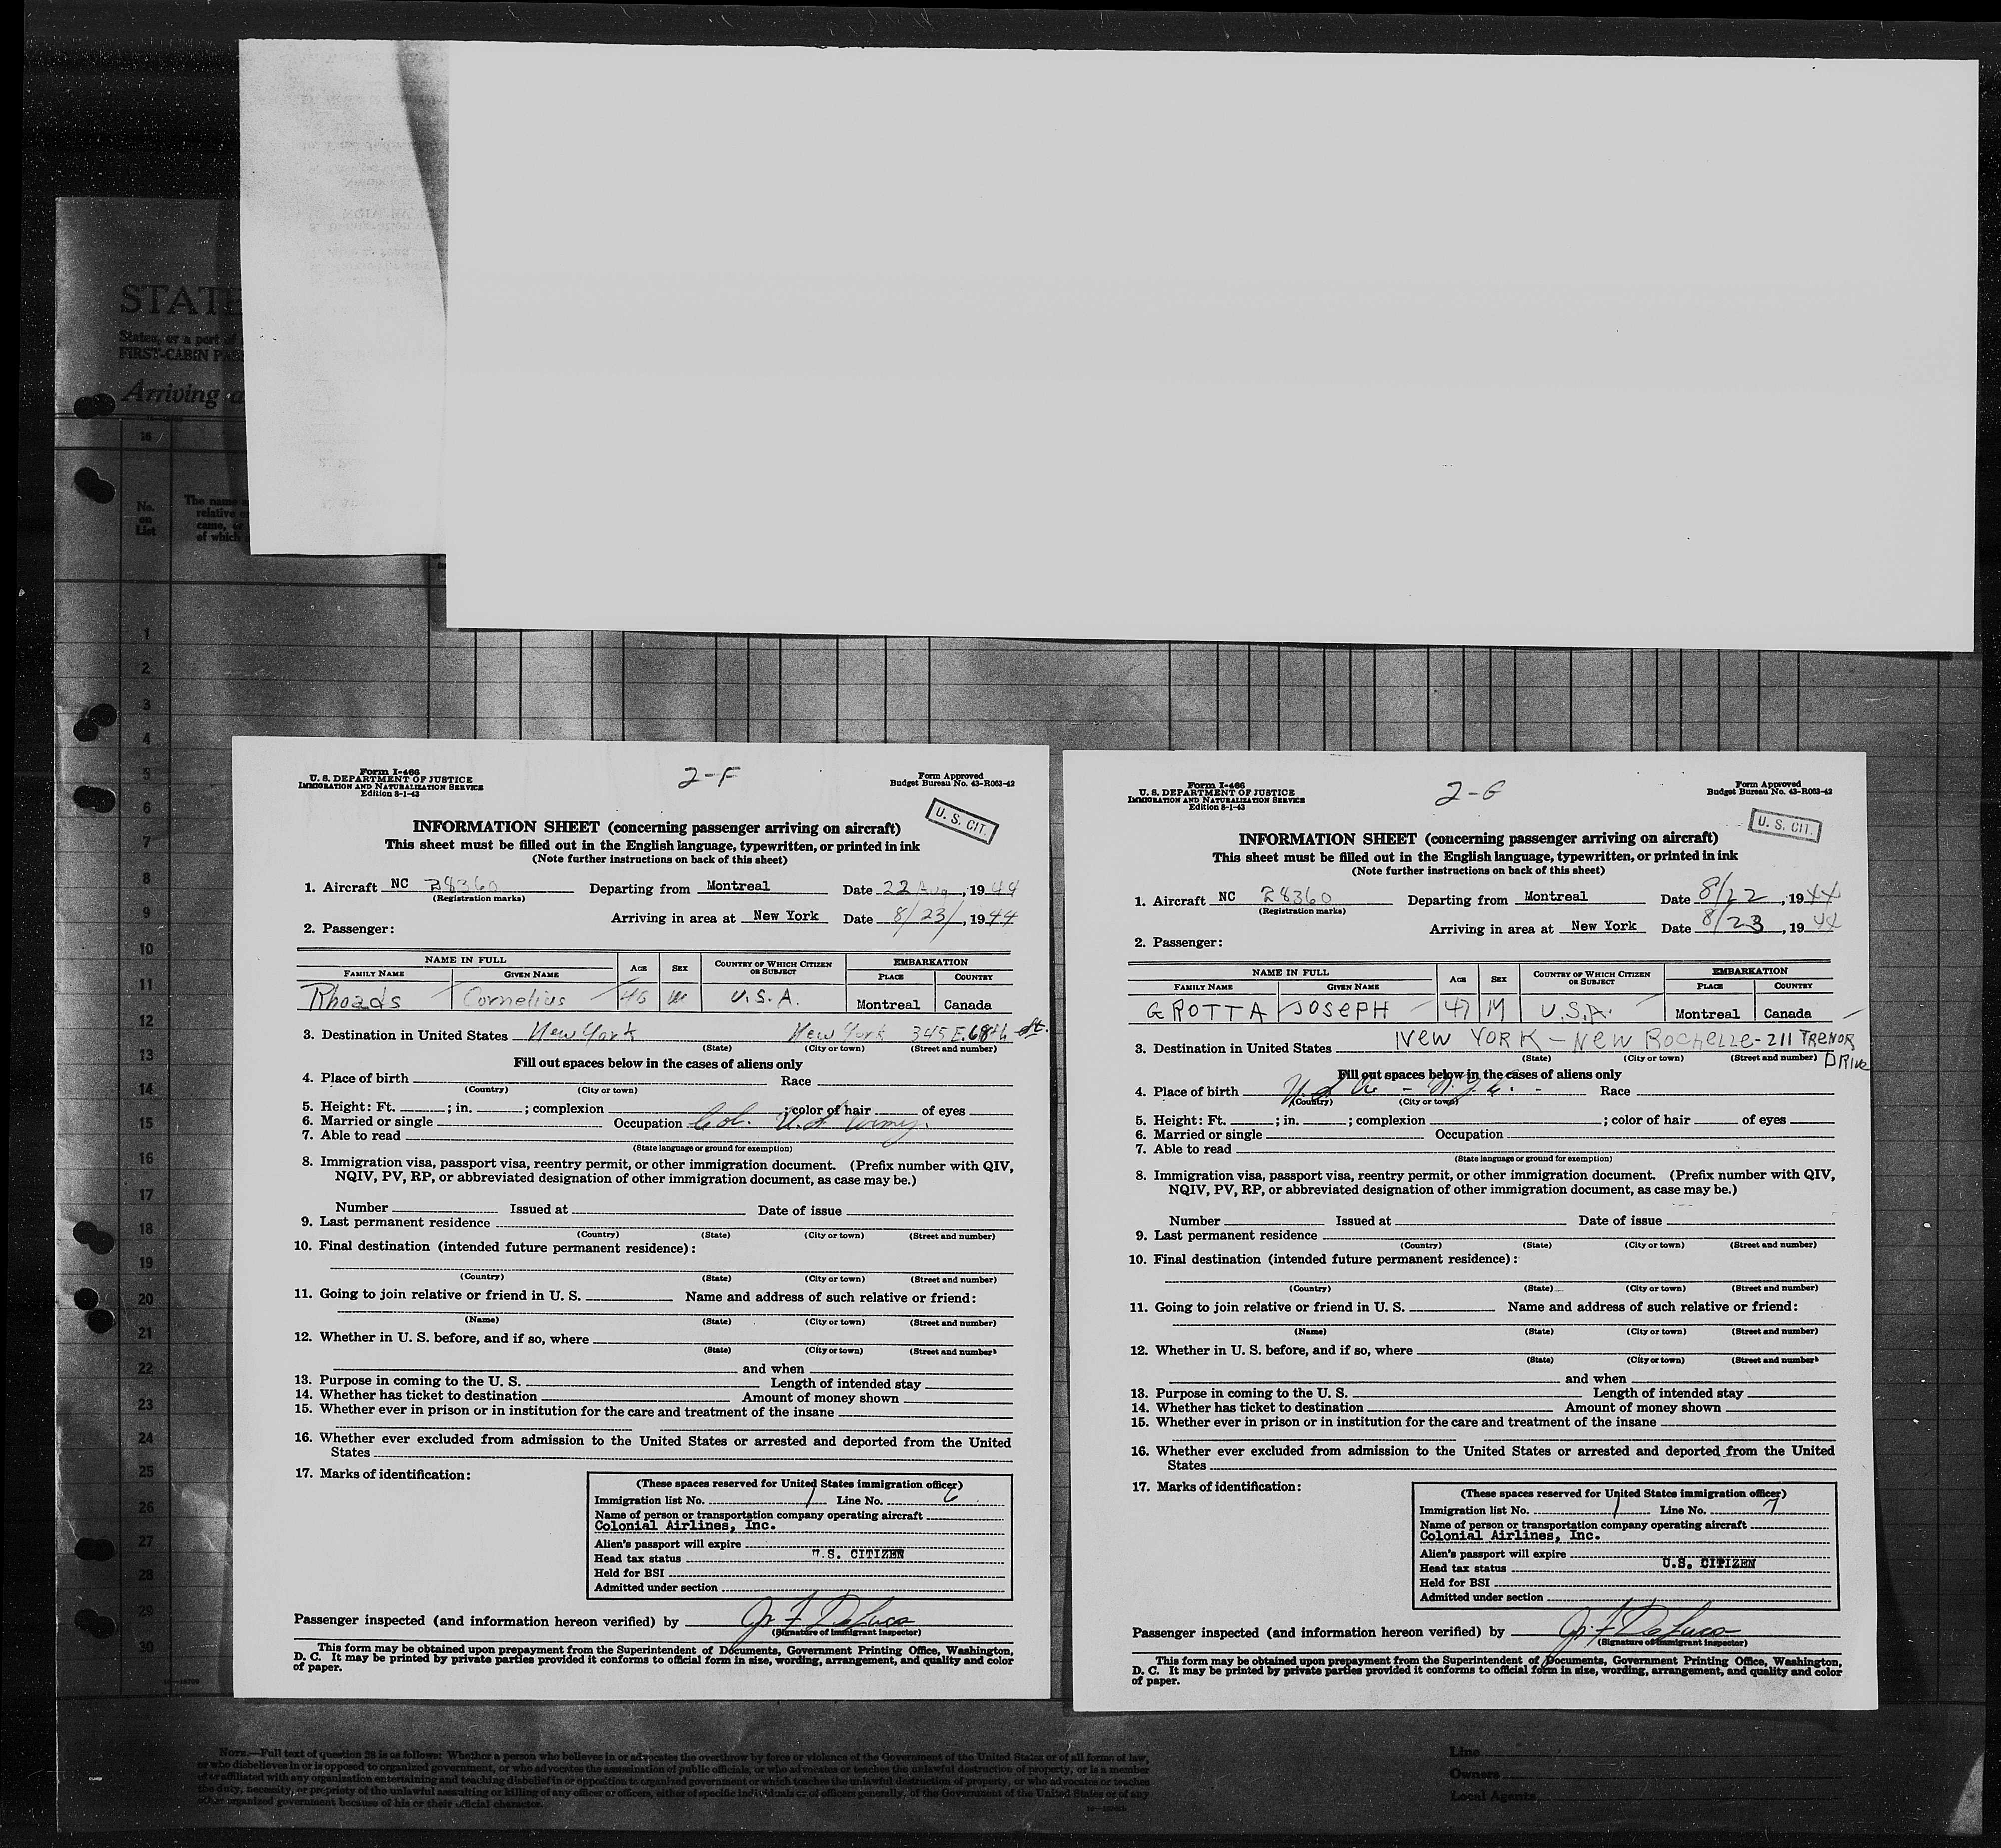 STATE
States, or a part of
FIRST-CABIN PAS
Arriving a
16
No.
on
List
The name
relative or
came, or
of which
1
2
3
4
5
6
7
8
9
10
11
12
13
14
15
16
17
18
19
20
21
22
23
24
25
26
27
28
29
30
Form I-466
U. S. DEPARTMENT OF JUSTICE
IMMIGRATION AND NATURALIZATION SERVICE
Edition 8-1-43
2-F
Form Approved
Budget Bureau No. 43-R063-42
U. S. CIT.
INFORMATION SHEET (concerning passenger arriving on aircraft)
This sheet must be filled out in the English language, typewritten, or printed in ink
(Note further instructions on back of this sheet)
1. Aircraft NC 28360 Departing from Montreal Date 22 Aug, 1944
(Registration marks)
Arriving in area at New York Date 8/23/, 1944
2. Passenger:
NAME IN FULL AGE SEX COUNTRY OF WHICH CITIZEN OR SUBJECT EMBARKATION
FAMILY NAME GIVEN NAME PLACE COUNTRY
Rhoads Cornelius 46 M U.S.A. Montreal Canada
3. Destination in United States New York New York 345 E. 68th St.
(State) (City or town) (Street and number)
Fill out spaces below in the cases of aliens only
4. Place of birth Race
(Country) (City or town)
5. Height: Ft. ; in. ; complexion ; color of hair of eyes
6. Married or single Occupation Col. U.S. Army.
7. Able to read
(State language or ground for exemption)
8. Immigration visa, passport visa, reentry permit, or other immigration document. (Prefix number with QIV,
NQIV, PV, RP, or abbreviated designation of other immigration document, as case may be.)
Number Issued at Date of issue
9. Last permanent residence
(Country) (State) (City or town) (Street and number)
10. Final destination (intended future permanent residence):
(Country) (State) (City or town) (Street and number)
11. Going to join relative or friend in U. S. Name and address of such relative or friend:
(Name) (State) (City or town) (Street and number)
12. Whether in U. S. before, and if so, where
(State) (City or town) (Street and number)
and when
13. Purpose in coming to the U. S. Length of intended stay
14. Whether has ticket to destination Amount of money shown
15. Whether ever in prison or in institution for the care and treatment of the insane
16. Whether ever excluded from admission to the United States or arrested and deported from the United
States
17. Marks of identification:
(These spaces reserved for United States immigration officer)
Immigration list No. 1 Line No. 6
Name of person or transportation company operating aircraft
Colonial Airlines, Inc.
Alien's passport will expire
Head tax status U.S. CITIZEN
Held for BSI
Admitted under section
Passenger inspected (and information hereon verified) by Jr. F. DeLuca
(Signature of immigrant inspector)
This form may be obtained upon prepayment from the Superintendent of Documents, Government Printing Office, Washington,
D. C. It may be printed by private parties provided it conforms to official form in size, wording, arrangement, and quality and color
of paper.
Form I-466
U. S. DEPARTMENT OF JUSTICE
IMMIGRATION AND NATURALIZATION SERVICE
Edition 8-1-43
2-G
Form Approved
Budget Bureau No. 43-R063-42
U. S. CIT.
INFORMATION SHEET (concerning passenger arriving on aircraft)
This sheet must be filled out in the English language, typewritten, or printed in ink
(Note further instructions on back of this sheet)
1. Aircraft NC 28360 Departing from Montreal Date 8/22, 1944
(Registration marks)
Arriving in area at New York Date 8/23, 1944
2. Passenger:
NAME IN FULL AGE SEX COUNTRY OF WHICH CITIZEN OR SUBJECT EMBARKATION
FAMILY NAME GIVEN NAME PLACE COUNTRY
GROTTA JOSEPH 47 M U.S.A. Montreal Canada
3. Destination in United States NEW YORK - NEW ROCHELLE - 211 TRENOR DRIVE
(State) (City or town) (Street and number)
Fill out spaces below in the cases of aliens only
4. Place of birth U.S.A. - N.Y.C. - Race
(Country) (City or town)
5. Height: Ft. ; in. ; complexion ; color of hair of eyes
6. Married or single Occupation
7. Able to read
(State language or ground for exemption)
8. Immigration visa, passport visa, reentry permit, or other immigration document. (Prefix number with QIV,
NQIV, PV, RP, or abbreviated designation of other immigration document, as case may be.)
Number Issued at Date of issue
9. Last permanent residence
(Country) (State) (City or town) (Street and number)
10. Final destination (intended future permanent residence):
(Country) (State) (City or town) (Street and number)
11. Going to join relative or friend in U. S. Name and address of such relative or friend:
(Name) (State) (City or town) (Street and number)
12. Whether in U. S. before, and if so, where
(State) (City or town) (Street and number)
and when
13. Purpose in coming to the U. S. Length of intended stay
14. Whether has ticket to destination Amount of money shown
15. Whether ever in prison or in institution for the care and treatment of the insane
16. Whether ever excluded from admission to the United States or arrested and deported from the United
States
17. Marks of identification:
(These spaces reserved for United States immigration officer)
Immigration list No. 1 Line No. 7
Name of person or transportation company operating aircraft
Colonial Airlines, Inc.
Alien's passport will expire
Head tax status U.S. CITIZEN
Held for BSI
Admitted under section
Passenger inspected (and information hereon verified) by Jr. F. DeLuca
(Signature of immigrant inspector)
This form may be obtained upon prepayment from the Superintendent of Documents, Government Printing Office, Washington,
D. C. It may be printed by private parties provided it conforms to official form in size, wording, arrangement, and quality and color
of paper.
NOTE.—Full text of question 28 is as follows: Whether a person who believes in or advocates the overthrow by force or violence of the Government of the United States or of all forms of law,
or who disbelieves in or is opposed to organized government, or who advocates the assassination of public officials, or who advocates or teaches the unlawful destruction of property, or is a member
of or affiliated with any organization entertaining and teaching disbelief in or opposition to organized government or which teaches the unlawful destruction of property, or who advocates or teaches
the duty, necessity, or propriety of the unlawful assaulting or killing of any officer or officers, either of specific individuals or of officers generally, of the Government of the United States or of any
other organized government because of his or their official character.
Line
Owners
Local Agents